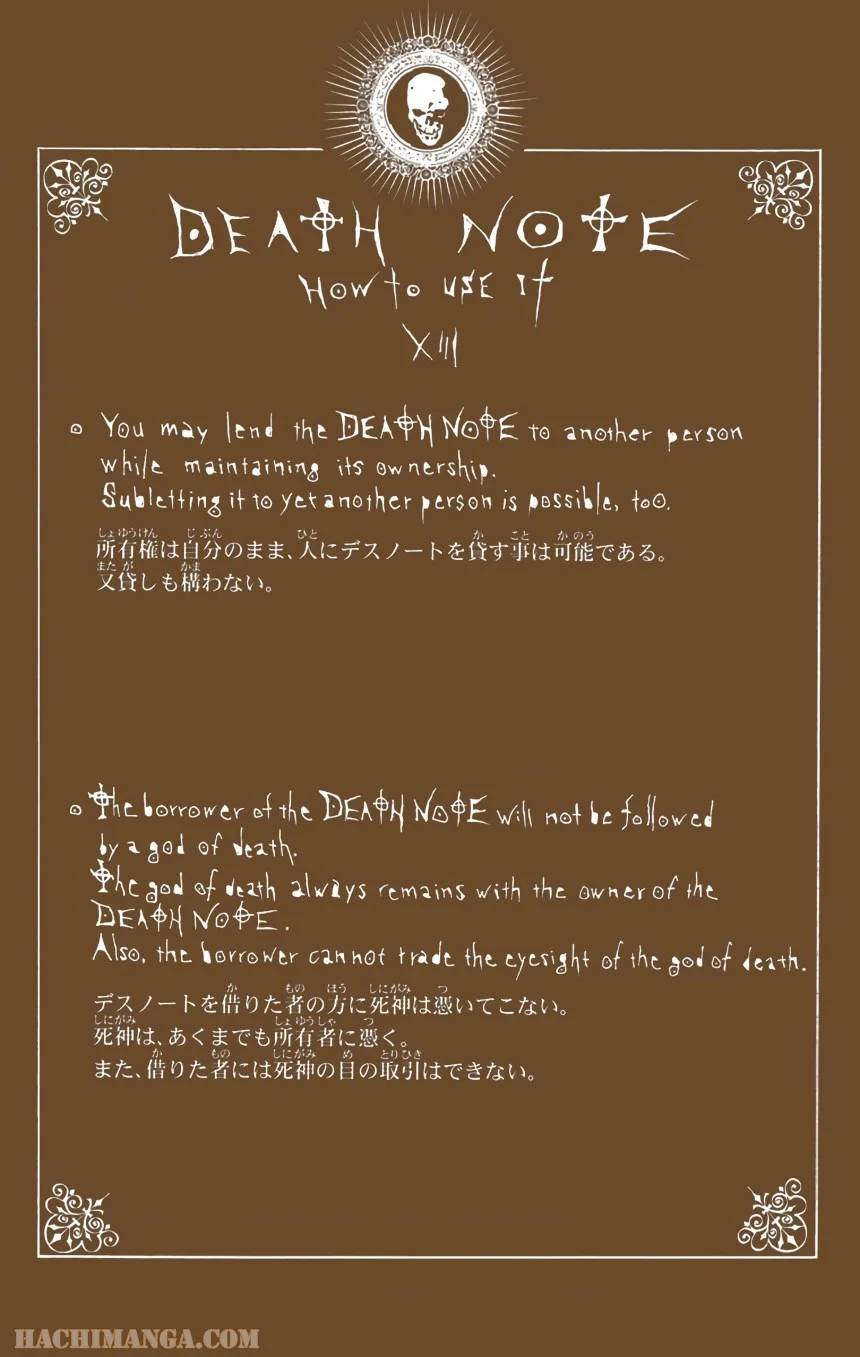 DEATH NOTE
HOW to USE It
XIII
You may lend the DEATH NOTE to another person
while maintaining its ownership.
Subletting it to yet another person is possible, too.
所有権は自分のまま、人にデスノートを貸す事は可能である。
又貸しも構わない。
The borrower of the DEATH NOTE will not be followed
by a god of death.
The god of death always remains with the owner of the
DEATH NOTE.
Also, the borrower cannot trade the eyesight of the god of death.
デスノートを借りた者の方に死神は憑いてこない。
死神は、あくまでも所有者に憑く。
また、借りた者には死神の目の取引はできない。
HACHIMANGA.COM